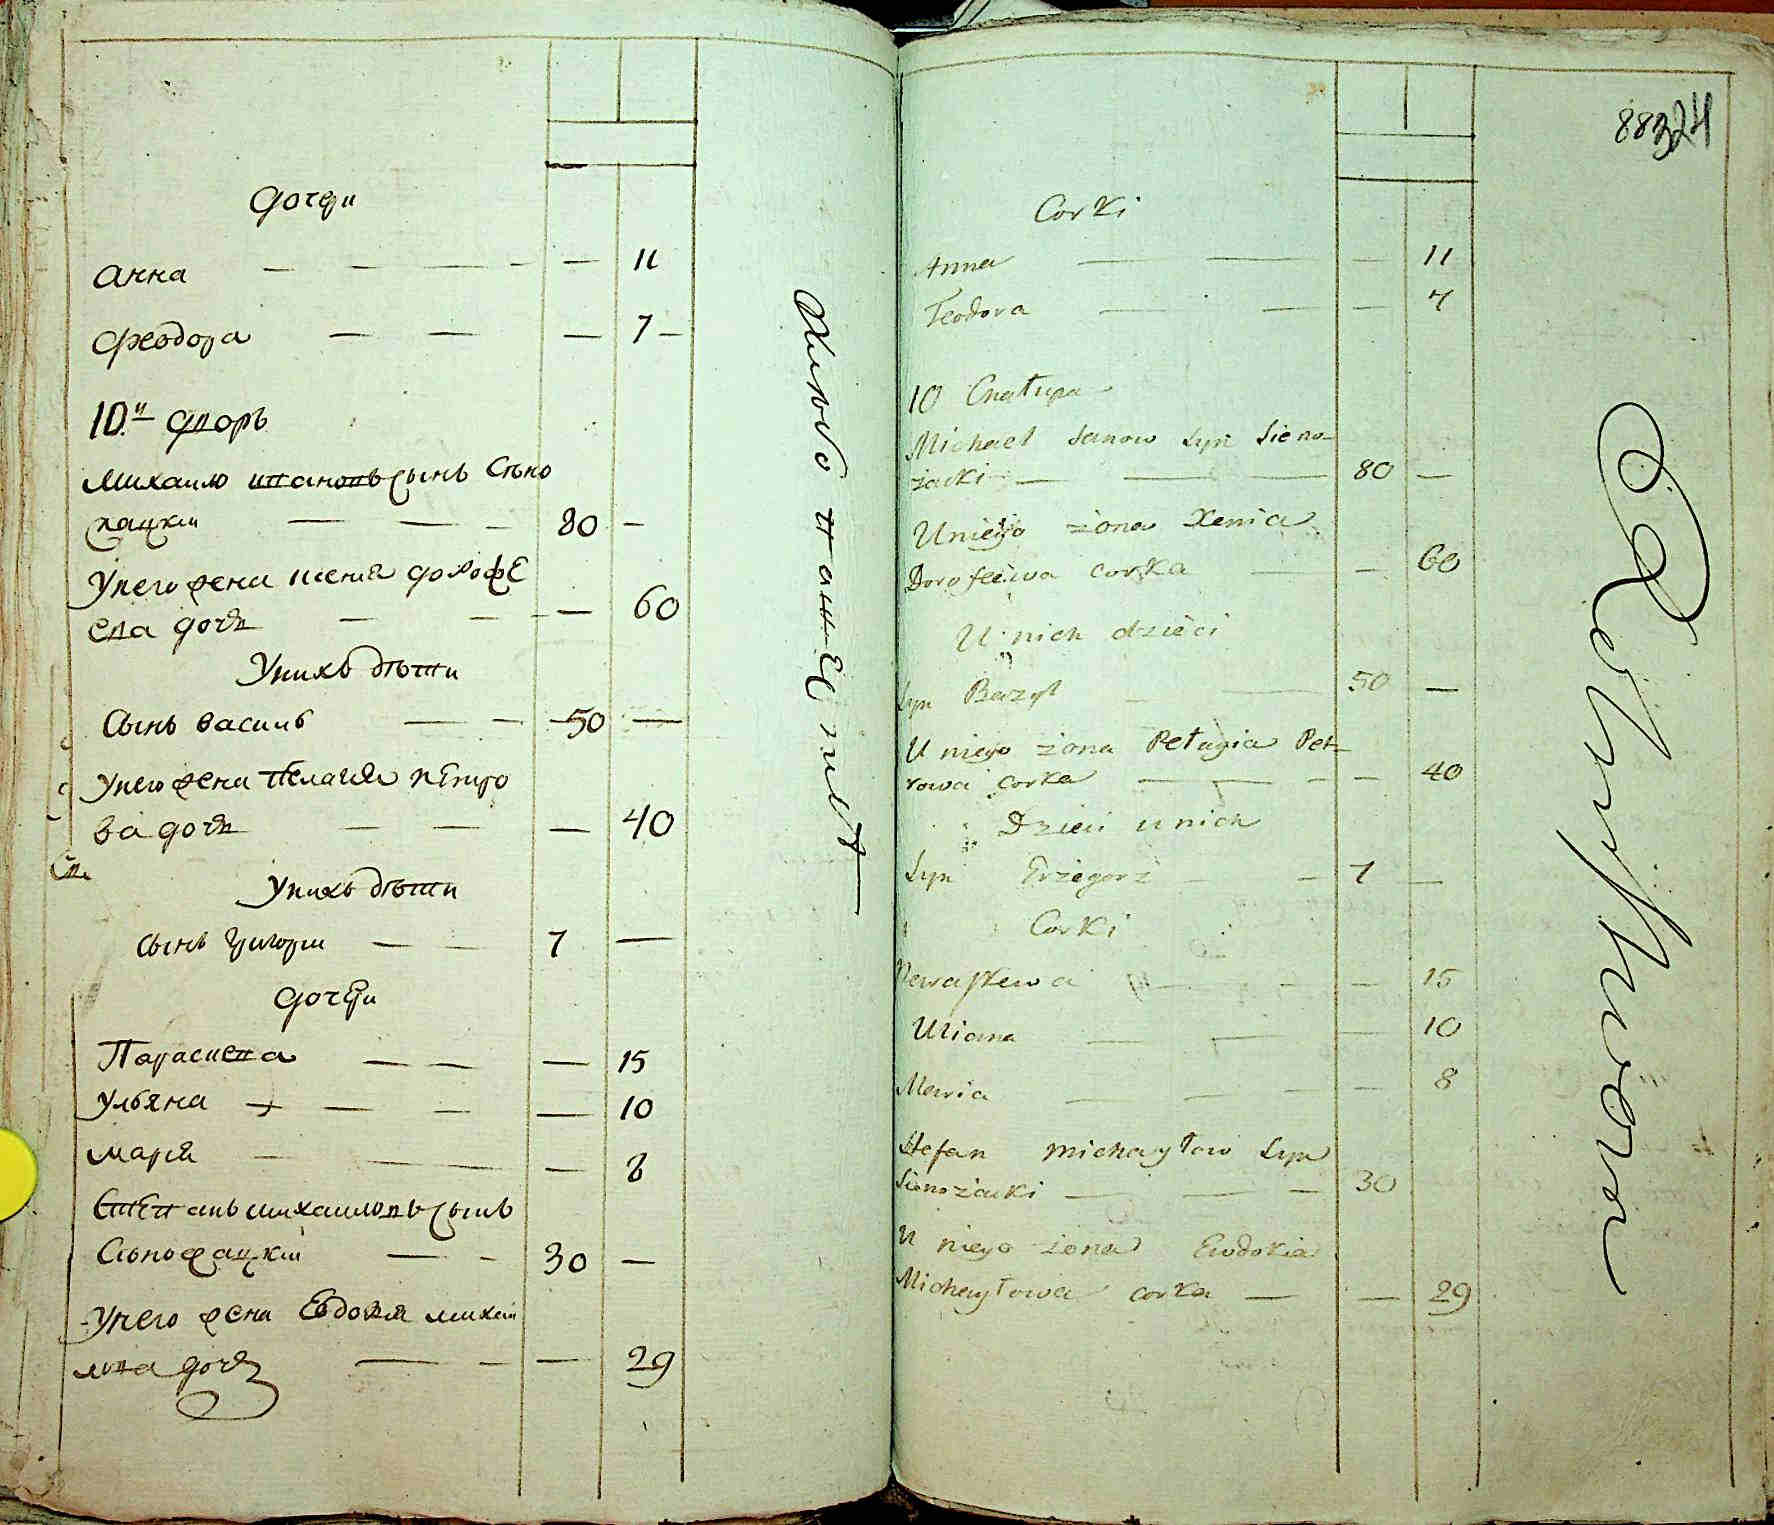 дочери
анна — — — — — 11
феодора — — — 7 —
10й дворъ
михаило ивановъ сынъ Сѣно
жацкїи — — — 80 —
Унего жена ксенїя дорофе
ева дочь — — — — 60
Унихъ дѣти
Сынъ василь — — 50 —
унего жена пелагея петро
ва дочь — — — 40
Унихъ дѣти
сынъ григорїи — — 7 —
дочери
Парасцева — — — 15
ульяна — — — — 10
марїя — — — 8
Степанъ михаиловъ сынъ
Сѣножацкїи — — 30 —
-унего жена Евдокїя михаи
лова дочь — — — 29
88 324
Corki
Anna — — — 11
Teodora — — — 7
10 Chałupa
Michaeł Janow Syn Sieno-
żacki — — — 80 —
U niego żona Xenia
Dorofeiowa corka — — 60
U nich dzieci
Syn Bazyl — 50 —
U niego żona Pełagia Pet-
rowa corka — — — — 40
Dzieci u nich
Syn Grzegorz — — 7 —
Corki
Paraskewa — — — 15
Uliana — — — 10
Maria — — — 8
Stefan Michayłow Syn
Sienożacki — — — 30
U niego żona Ewdokia
Michayłowa corka — — 29